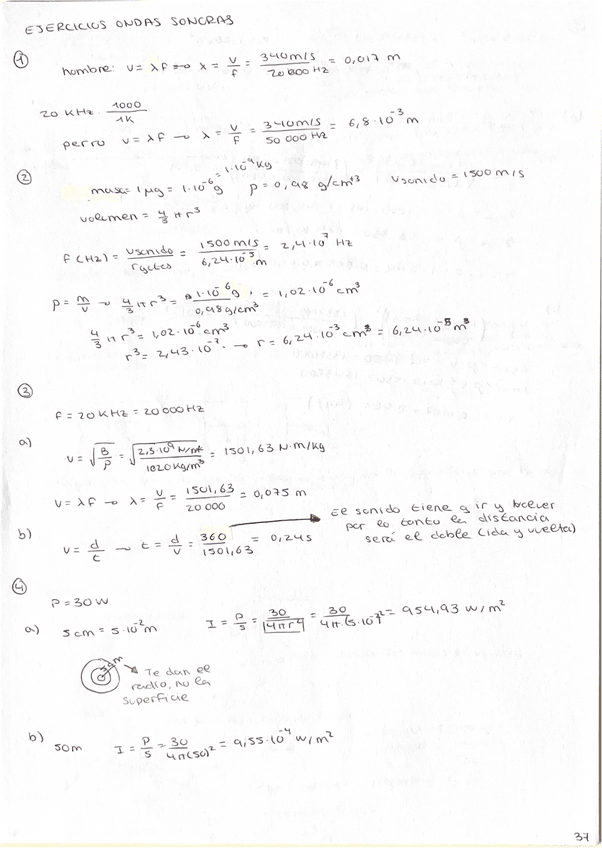 EJERCICIOS ONDAS SONORAS
①
hombre: v = λf → λ = v/f = 340m/s / 20 000 Hz = 0,017 m
20 KHz · 1000/1K
perro v = λf → λ = v/f = 340m/s / 50 000 Hz = 6,8·10⁻³ m
②
= 1·10⁻⁹ Kg
masa = 1μg = 1·10⁻⁶g ρ = 0,98 g/cm³ vsonido = 1500 m/s
volumen = 4/3 π r³
f (Hz) = vsonido / rgotas = 1500 m/s / 6,24·10⁻⁵ m = 2,4·10⁷ Hz
ρ = m/v → 4/3 π r³ = 1·10⁻⁶g / 0,98g/cm³ = 1,02·10⁻⁶ cm³
4/3 π r³ = 1,02·10⁻⁶ cm³
r³ = 2,43·10⁻⁷ → r = 6,24·10⁻³ cm = 6,24·10⁻⁵ m
③
f = 20 KHz = 20 000 Hz
a)
v = √(B/ρ) = √(2,3·10⁹ N/m² / 1020 Kg/m³) = 1501,63 N·m/kg
v = λf → λ = v/f = 1501,63 / 20 000 = 0,075 m
El sonido tiene q ir y volver
por lo tanto la distancia
será el doble (ida y vuelta)
b)
v = d/t → t = d/v = 360 / 1501,63 = 0,24s
④
P = 30 W
a) 5 cm = 5·10⁻² m I = P/S = 30 / 4πr² = 30 / 4π·(5·10⁻²)² = 954,93 W/m²
Te dan el
radio, no la
superficie
b) 50m I = P/S = 30 / 4π(50)² = 9,55·10⁻⁴ W/m²
37